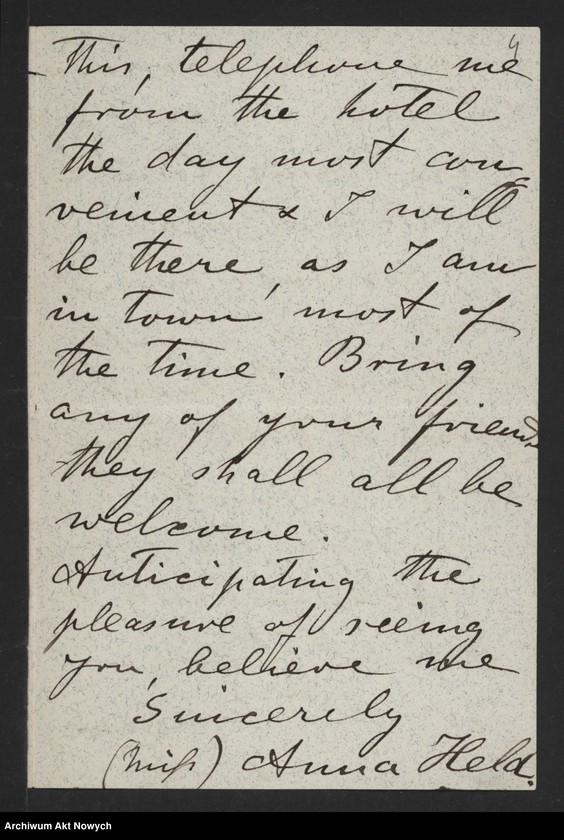 4
This, telephone me
from the hotel
the day most con
venient & I will
be there, as I am
in town most of
the time. Bring
any of your friends
they shall all be
welcome.
Anticipating the
pleasure of seeing
you, believe me
Sincerely
(Miss) Anna Held.
Archiwum Akt Nowych